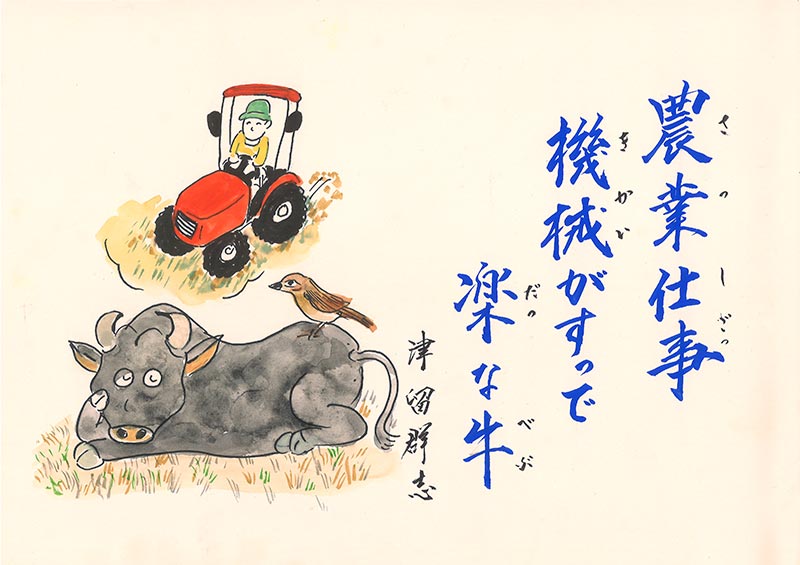 農業仕事
さっしごっ
機械がすっで
きかい
楽な牛
だっ べぶ
津留群志